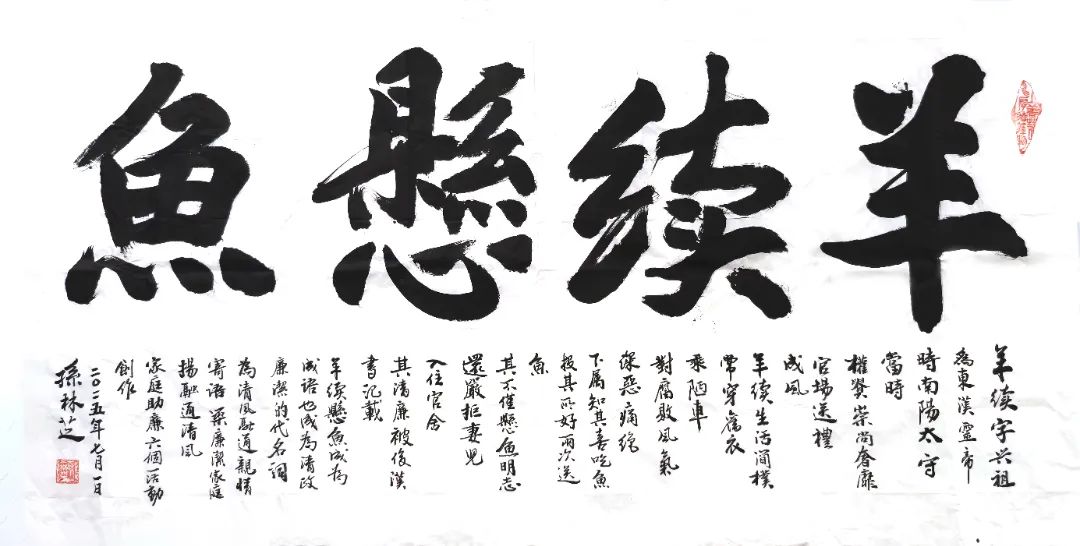 羊续懸魚
羊续字兴祖
為東漢靈帝
時南陽太守
當時
權贤崇尚奢靡
官場送禮
成風
羊续生活简樸
常穿舊衣
乘陋車
對腐敗風氣
深惡痛绝
下属知其喜吃魚
投其所好两次送
魚
其不僅懸魚明志
還嚴拒妻兒
入住官舍
其清廉被後漢
書記載
羊续懸魚成為
成语也成為清政
廉潔的代名詞
為清風融通親情
寄語 築廉潔家庭
揚融通清風
家庭助廉六個一活動
創作
二〇二五年七月一日
孫林芝